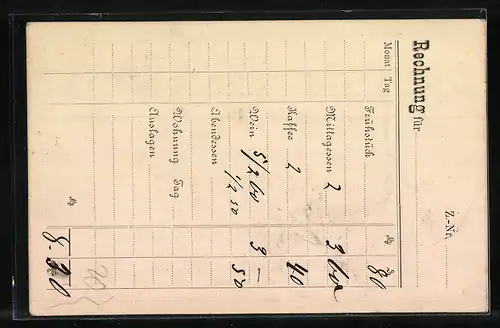 Rechnung für
Z-Nr.
Monat Tag
Frühstück 80
Mittagessen 2 3
Kaffee 2 40
Wein 5/2 3 —
1/2 50 50
Abendessen
Wohnung Tag
Auslagen
8. 20